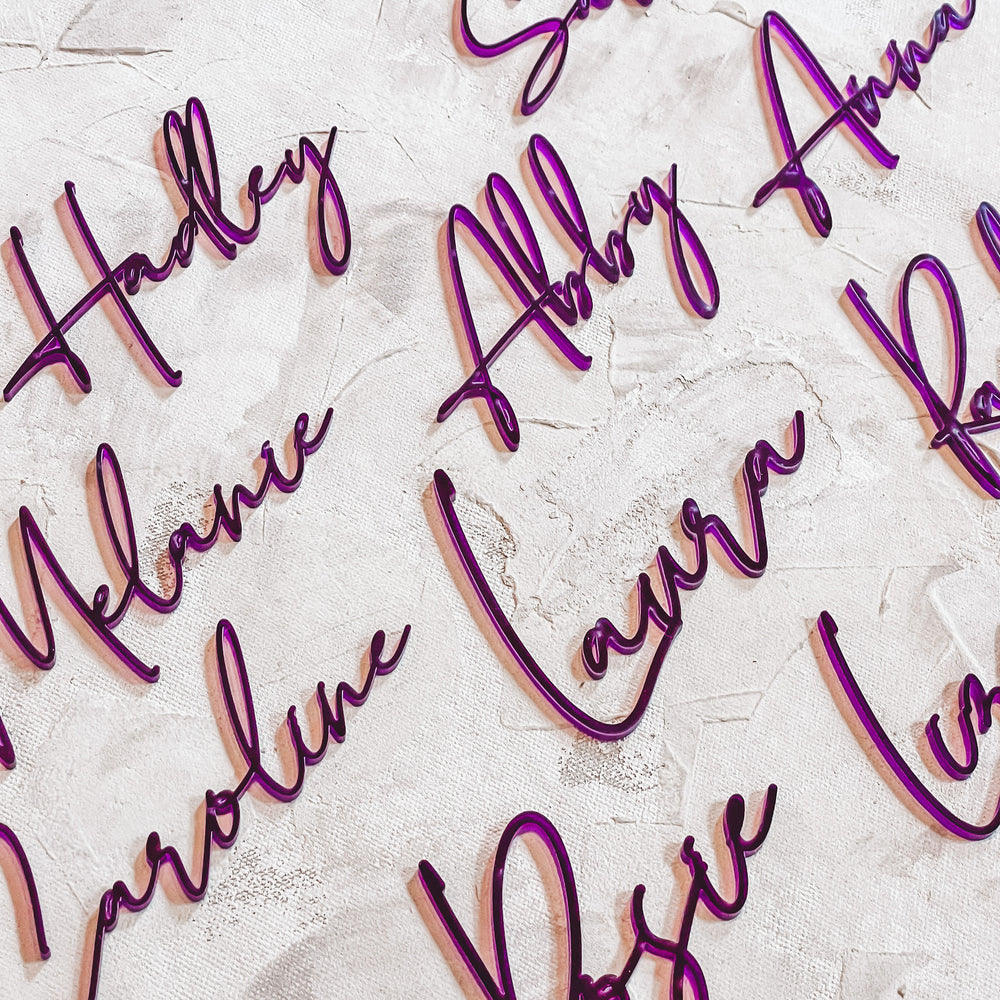 Anna
Hadley
Abby
Melanie
Laura
Caroline
Rosie